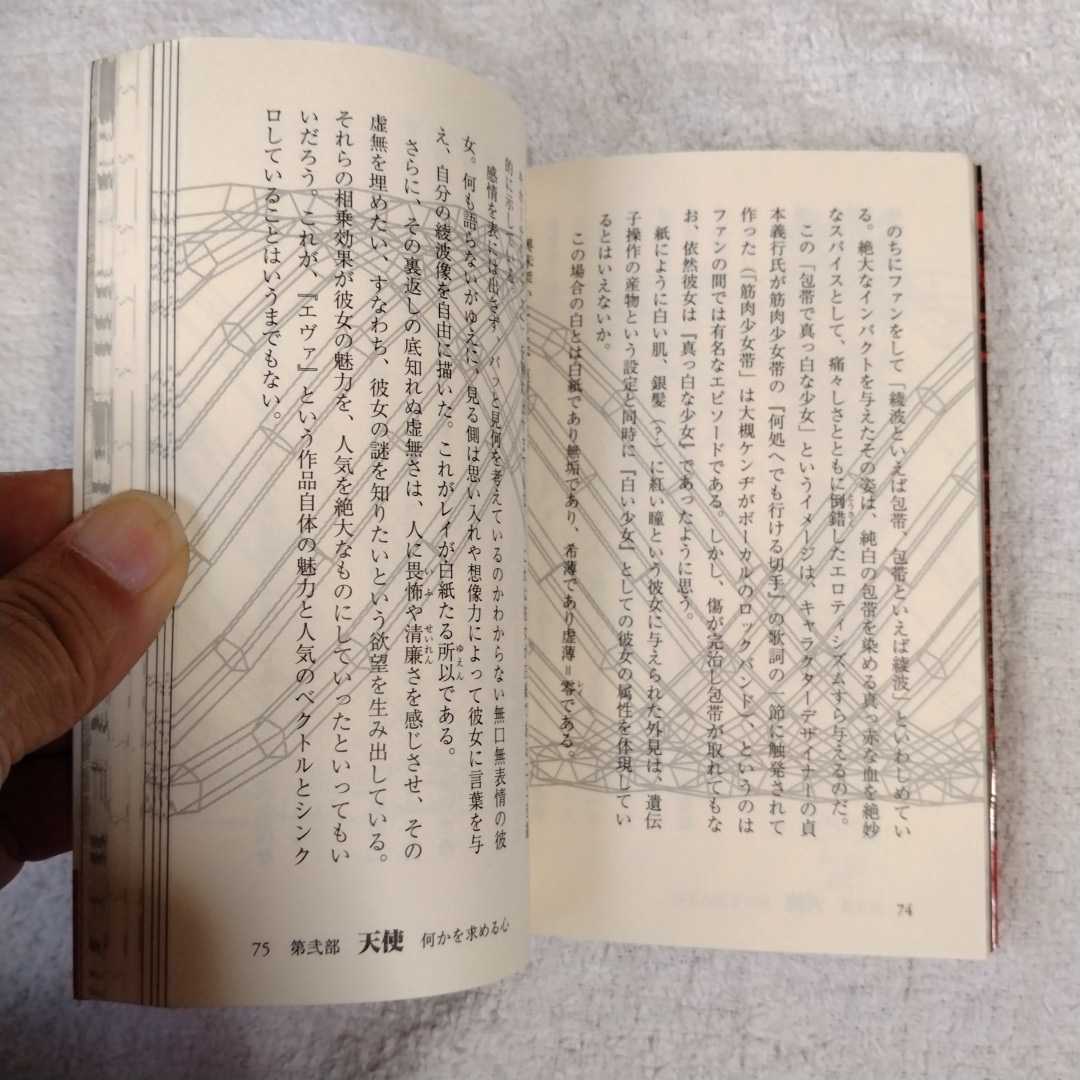 のちにファンをして「綾波といえば包帯、包帯といえば綾波」といわしめてい
る。絶大なインパクトを与えたその姿は、純白の包帯を染める真っ赤な血を絶妙
なスパイスとして、痛々しさとともに倒錯したエロティシズムすら与えるのだ。
この「包帯で真っ白な少女」というイメージは、キャラクターデザイナーの貞
本義行氏が筋肉少女帯の『何処へでも行ける切手』の歌詞の一節に触発されて
作った（「筋肉少女帯」は大槻ケンヂがボーカルのロックバンド）、というのは
ファンの間では有名なエピソードである。しかし、傷が完治し包帯が取れてもな
お、依然彼女は『真っ白な少女』であったように思う。
紙にように白い肌、銀髪（？）に紅い瞳という彼女に与えられた外見は、遺伝
子操作の産物という設定と同時に『白い少女』としての彼女の属性を体現してい
るとはいえないか。
この場合の白とは白紙であり無垢であり、希薄であり虚薄＝零である。
74
的に示している
感情を表には出さず、パッと見何を考えているのかわからない無口無表情の彼
女。何も語らないがゆえに、見る側は思い入れや想像力によって彼女に言葉を与
え、自分の綾波像を自由に描いた。これがレイが白紙たる所以である。
さらに、その裏返しの底知れぬ虚無さは、人に畏怖や清廉さを感じさせ、その
虚無を埋めたい、すなわち、彼女の謎を知りたいという欲望を生み出している。
それらの相乗効果が彼女の魅力を、人気を絶大なものにしていったといってもい
いだろう。これが、『エヴァ』という作品自体の魅力と人気のベクトルとシンク
ロしていることはいうまでもない。
75 第弐部 天使 何かを求める心